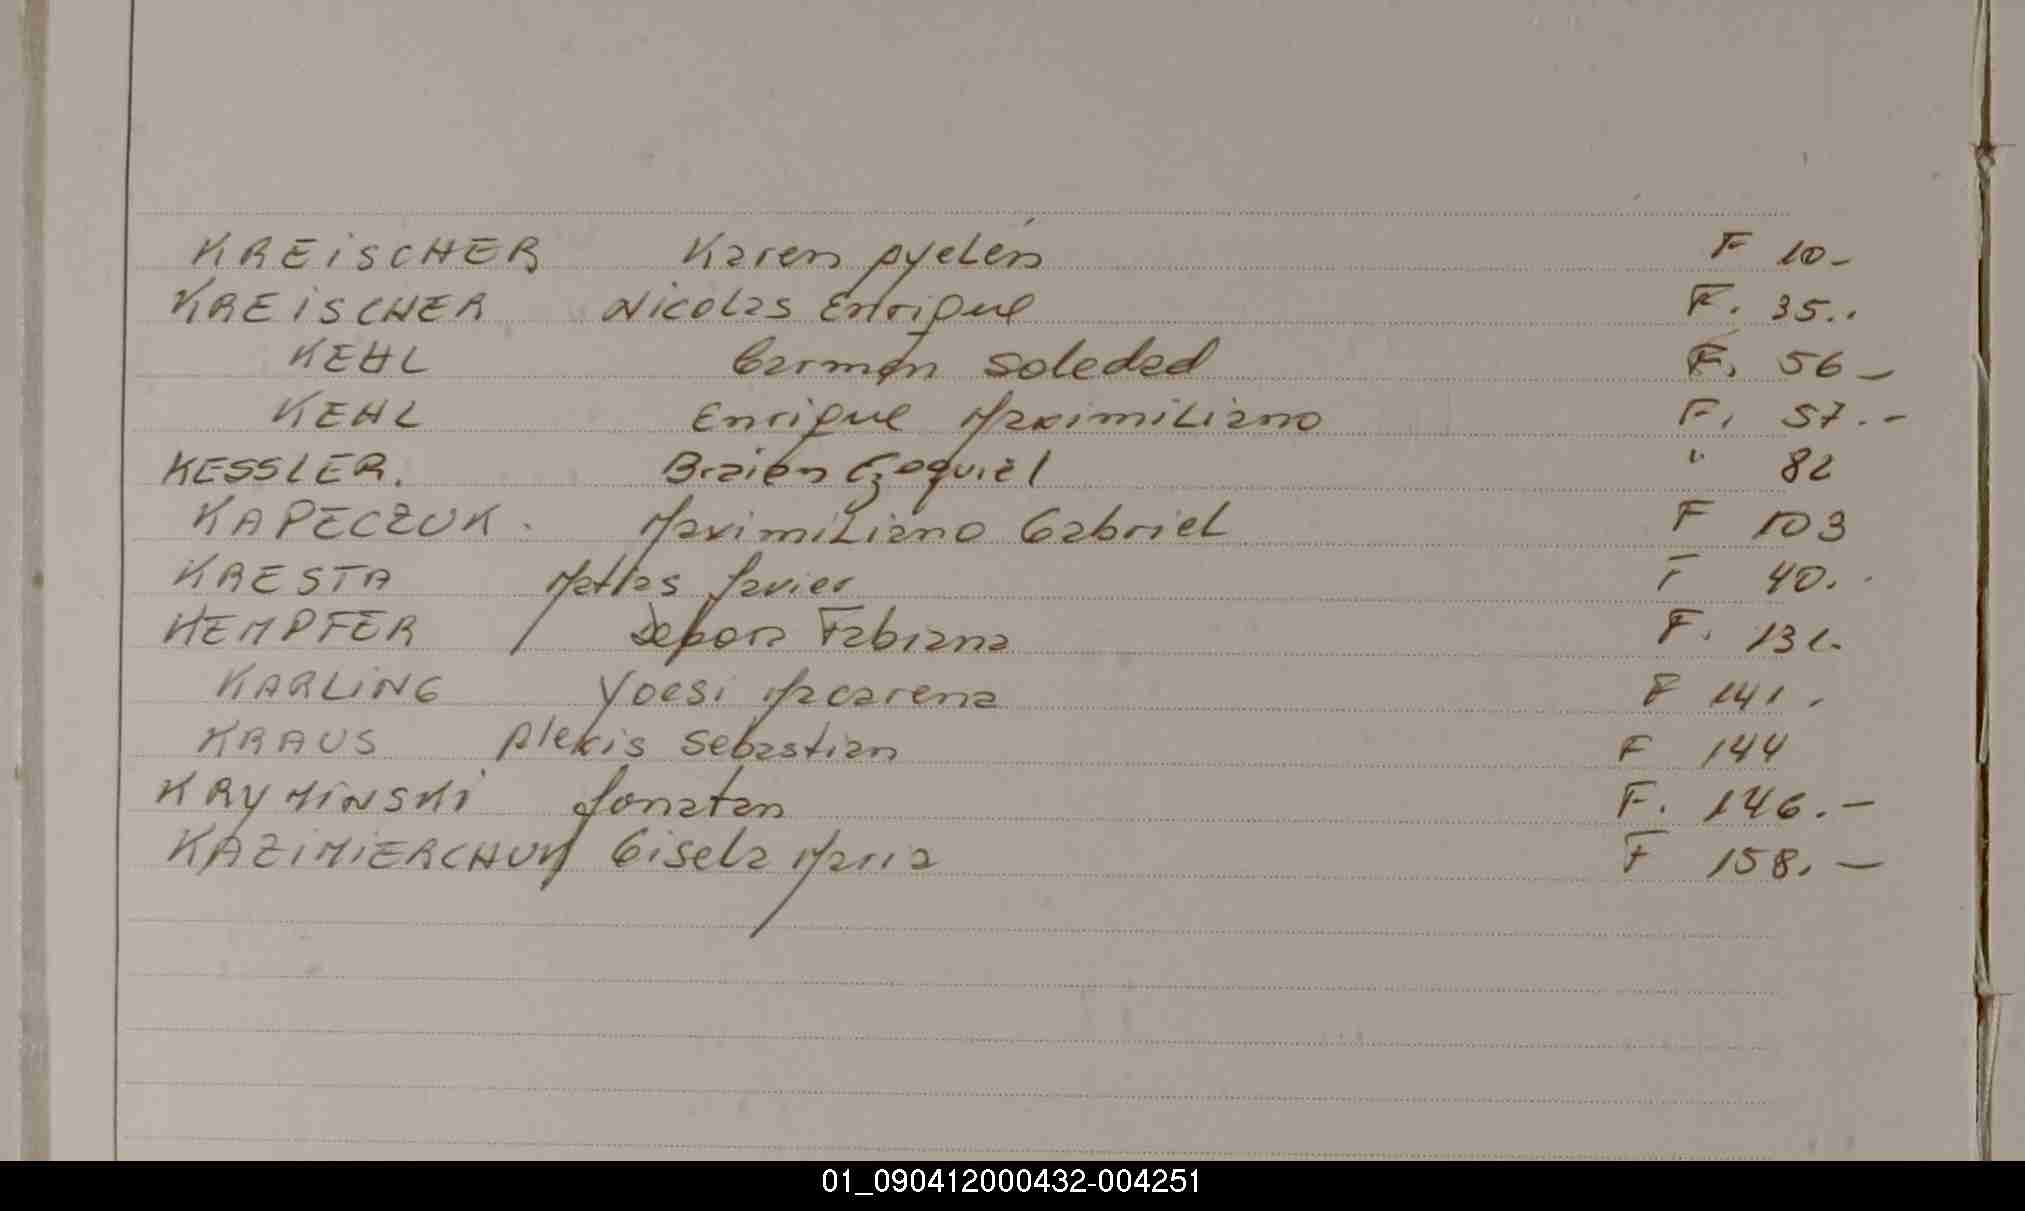 KREISCHER Karen Ayelén F 10-
KREISCHER Nicolas Enrique F. 35..
KEHL Carmen Soledad F. 56 -
KEHL Enrique Maximiliano F. 57.-
KESSLER. Braien Ezequiel " 82
KAPECZUK. Maximiliano Gabriel F 103
KRESTA Matias Javier F 40.
KEMPFER Debora Fabiana F. 132.
KARLING Yoesi Macarena F 141.
KRAUS Alexis Sebastian F 144
KRYMINSKI Jonatan F. 146.-
KAZIMIERCHUK Gisela Maria F 158. -
01_090412000432-004251